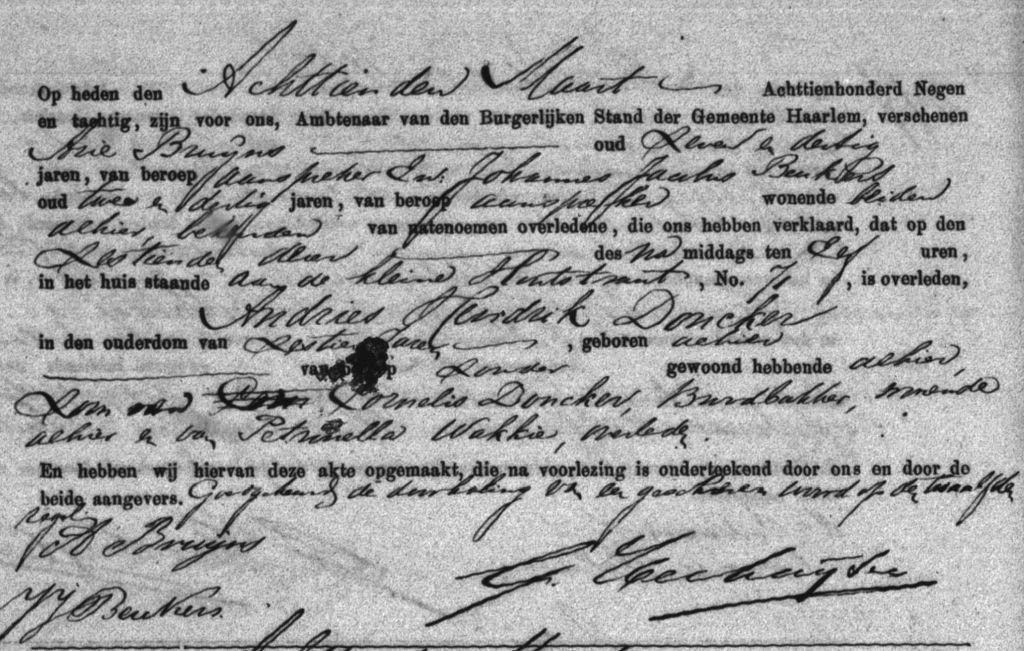 Op heden den Achttienden Maart Achttienhonderd Negen
en tachtig, zijn voor ons, Ambtenaar van den Burgerlijken Stand der Gemeente Haarlem, verschenen
Arie Bruijns oud zeven en dertig
jaren, van beroep aanspreker en Johannes Jacobus Beukers
oud twee en dertig jaren, van beroep aanspreker wonende beiden
alhier, bekenden van natenoemen overledene, die ons hebben verklaard, dat op den
Zestienden dezer des na middags ten Elf uren,
in het huis staande aan de kleine Houtstraat, No. 71, is overleden,
Andries Hendrik Doncker
in den ouderdom van zestien jaren, geboren alhier
van beroep zonder gewoond hebbende alhier,
Zoon van Cornelis Doncker, Broodbakker, wonende
alhier en van Petronella Wakkie, overleden.
En hebben wij hiervan deze akte opgemaakt, die na voorlezing is onderteekend door ons en door de
beide aangevers. Goedgekeurd de doorhaling van een geschreven woord op den twaalfden
regel.
A Bruijns
JJ Beukers